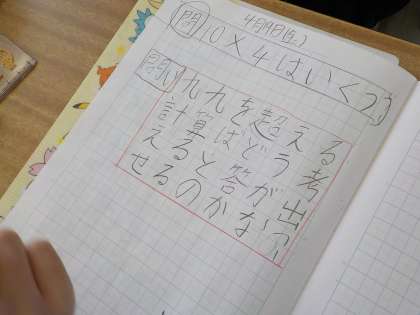 4月9日(火)
問 10×4はいくつ?
問い 九九を超える
計算はどう考
えると答が出
せるのかな?